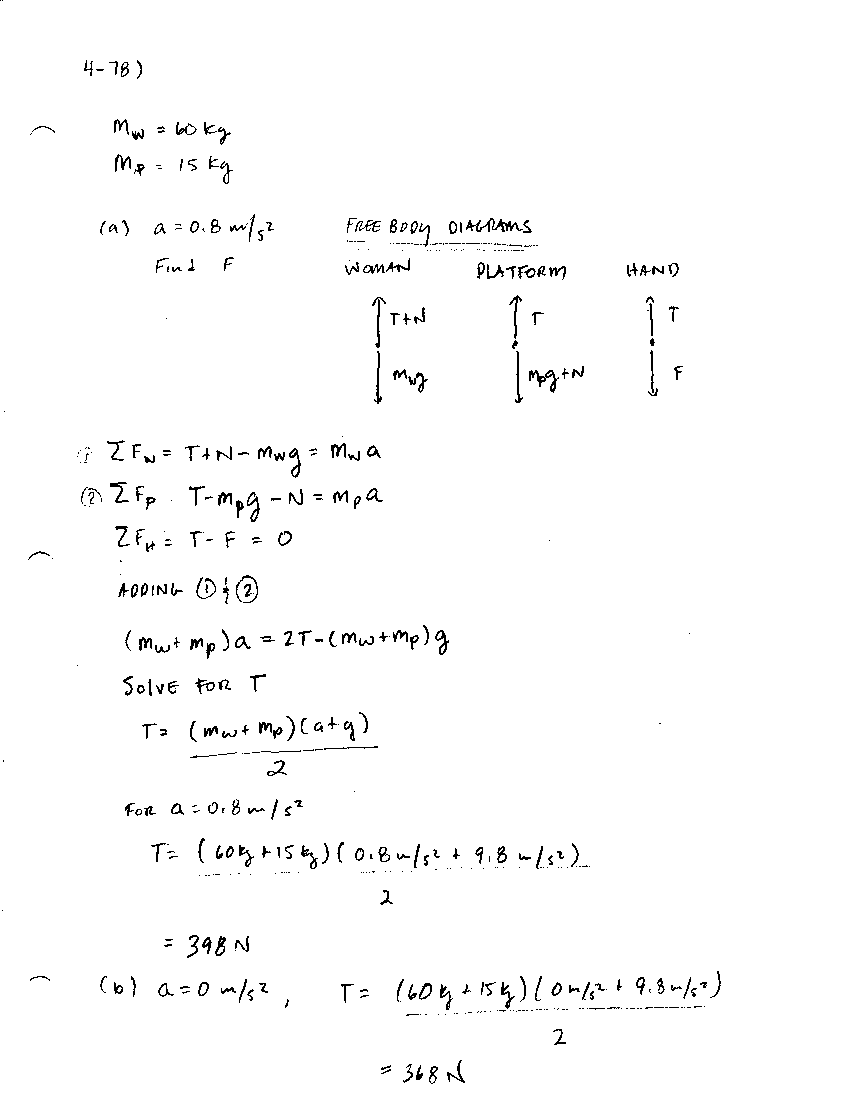 4-78)
m_w = 60 kg
m_p = 15 kg
(a) a = 0.8 m/s²
Find F
FREE BODY DIAGRAMS
WOMAN PLATFORM HAND
T+N T T
m_wg m_pg+N F
① ΣF_w = T+N-m_wg = m_wa
② ΣF_p T-m_pg-N = m_pa
ΣF_H = T-F = 0
ADDING ① & ②
(m_w+m_p)a = 2T-(m_w+m_p)g
SOLVE FOR T
T= (m_w+m_p)(a+g)
2
FOR a = 0.8 m/s²
T= (60kg+15kg)(0.8 m/s² + 9.8 m/s²)
2
= 398 N
(b) a = 0 m/s², T = (60kg+15kg)(0 m/s² + 9.8 m/s²)
2
= 368 N